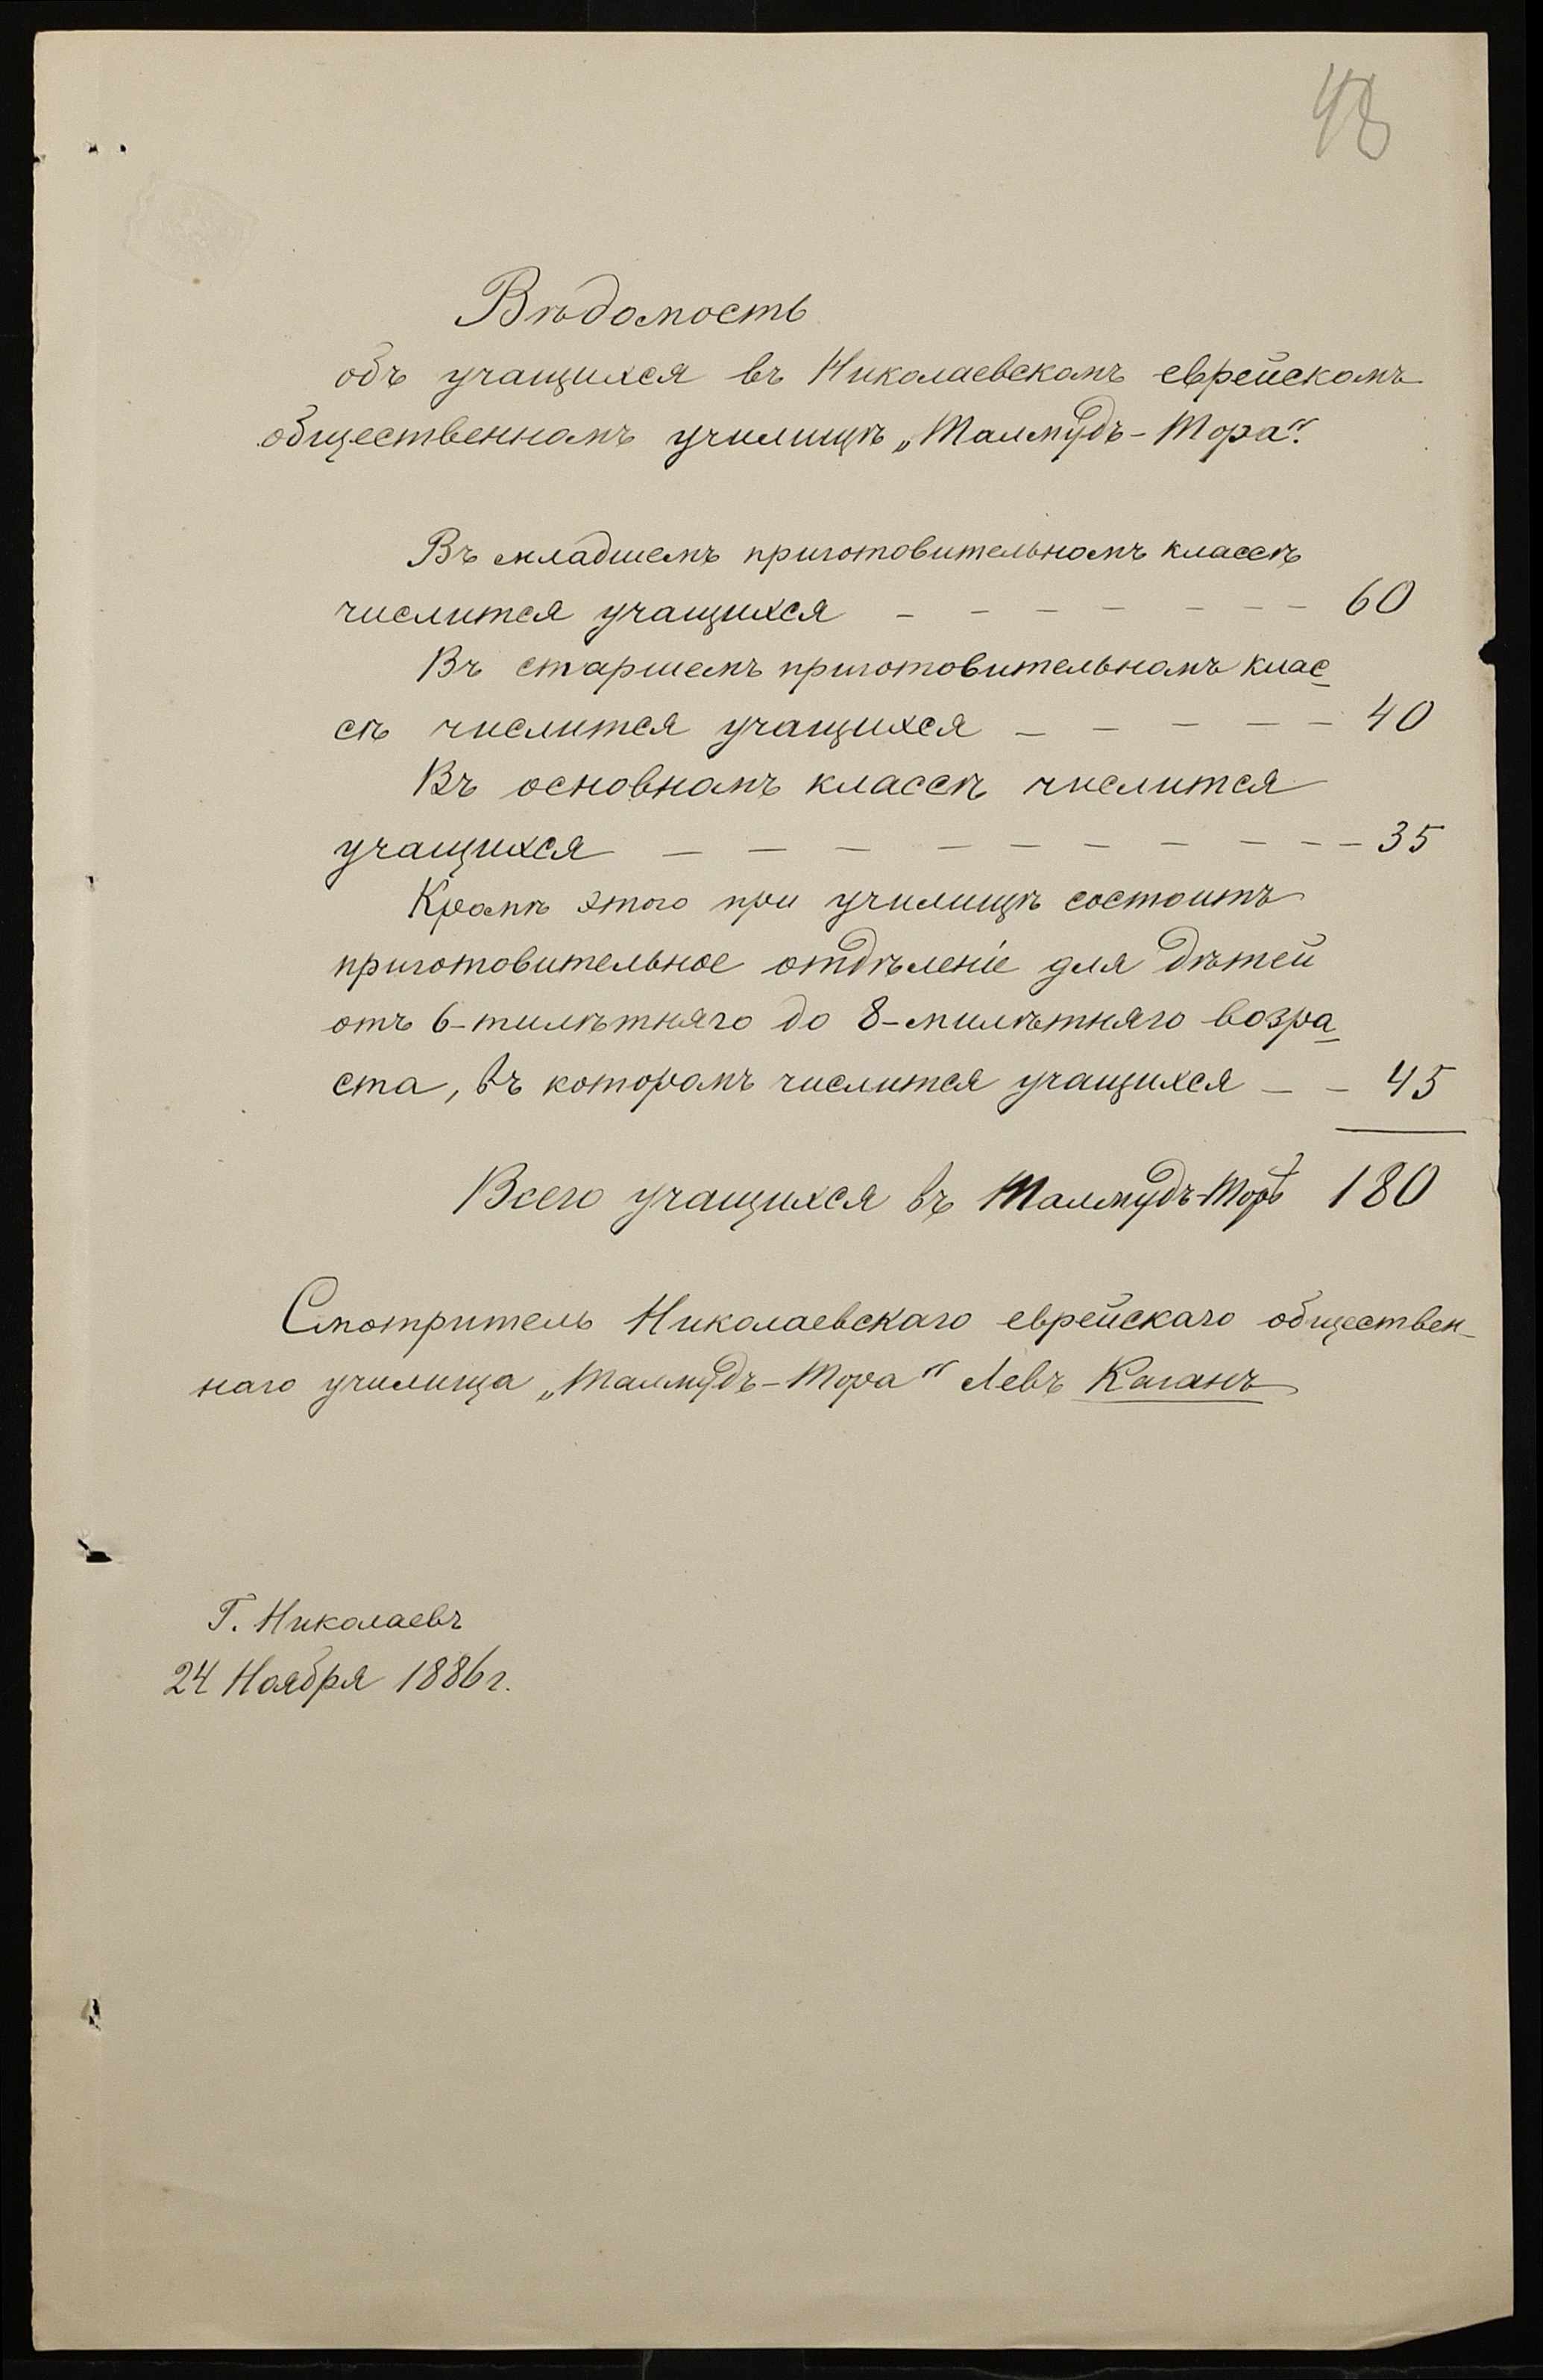 48
Вѣдомость
объ учащихся въ Николаевскомъ еврейскомъ
общественномъ училищѣ „Талмудъ-Тора“.
Въ младшемъ приготовительномъ классѣ
числится учащихся – – – – – – – 60
Въ старшемъ приготовительномъ клас-
сѣ числится учащихся – – – – – 40
Въ основномъ классѣ числится
учащихся – – – – – – – – – – 35
Кромѣ этого при училищѣ состоитъ
приготовительное отдѣленіе для дѣтей
отъ 6-тилѣтняго до 8-милѣтняго возра-
ста, въ которомъ числится учащихся – – 45
Всего учащихся въ Талмудъ-Торѣ 180
Смотритель Николаевскаго еврейскаго обществен-
наго училища „Талмудъ-Тора“ Левъ Каганъ
Г. Николаевъ
24 Ноября 1886 г.